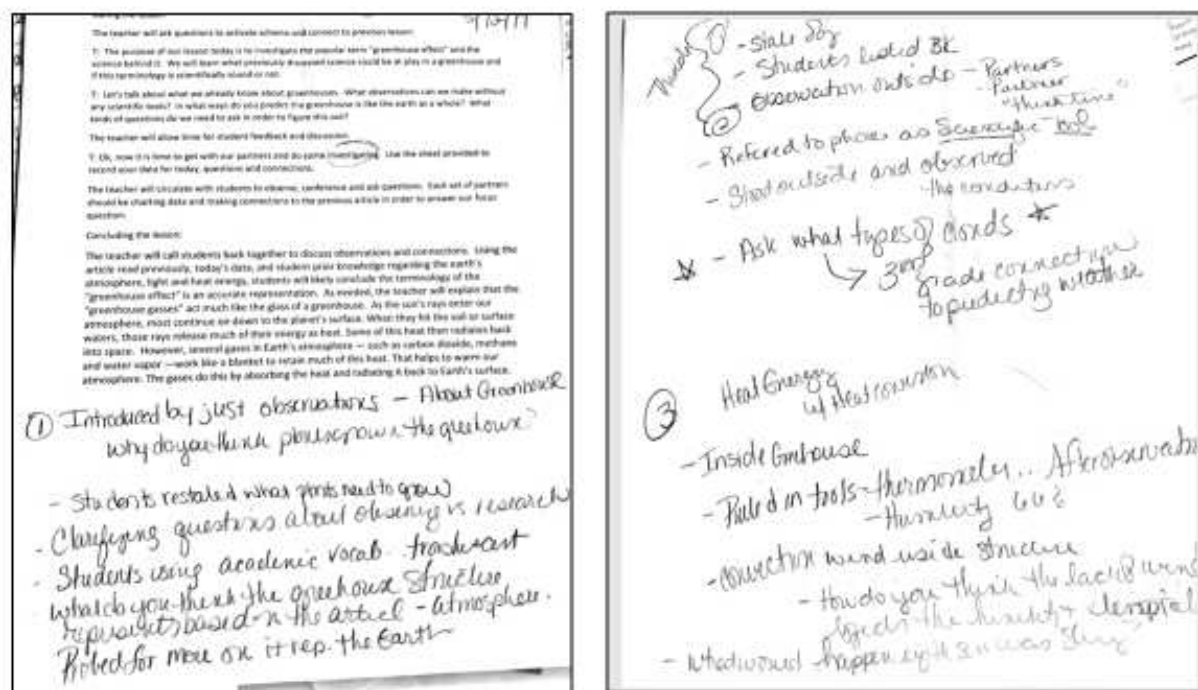 The teacher will ask questions to activate schema and connect to previous lesson:
T: The purpose of our lesson today is to investigate the popular term "greenhouse effect" and the
science behind it. We will learn what previously discussed science could be at play in a greenhouse and
if this terminology is scientifically sound or not.
T: Let's talk about what we already know about greenhouses. What observations can we make without
any scientific tools? In what ways do you predict the greenhouse is like the earth as a whole? What
kinds of questions do we need to ask in order to figure this out?
The teacher will allow time for student feedback and discussion.
T: Ok, now it is time to get with our partners and do some investigating. Use the sheet provided to
record your data for today, questions and connections.
The teacher will circulate with students to observe, conference and ask questions. Each set of partners
should be charting data and making connections to the previous article in order to answer our focus
question.
Concluding the lesson:
The teacher will call students back together to discuss observations and connections. Using the
article read previously, today's data, and student prior knowledge regarding the earth's
atmosphere, light and heat energy, students will likely conclude the terminology of the
"greenhouse effect" is an accurate representation. As needed, the teacher will explain that the
"greenhouse gasses" act much like the glass of a greenhouse. As the sun's rays enter our
atmosphere, most continue on down to the planet's surface. When they hit the soil or surface
waters, those rays release much of their energy as heat. Some of this heat then radiates back
into space. However, several gases in Earth's atmosphere — such as carbon dioxide, methane
and water vapor —work like a blanket to retain much of this heat. That helps to warm our
atmosphere. The gases do this by absorbing the heat and radiating it back to Earth's surface.
① Introduced by just observations - About Greenhouse
why do you think plants grow in the greenhouse?
- Students restated what plants need to grow
- Clarifying questions about observing vs research
- Students using academic vocab
- What do you think the greenhouse structure
represents based on the article - atmosphere.
Probed for more on it rep. the Earth
- Students listed BK
② Observation outside - Partners
- Partner
"think time"
- Refered to phones as Scientific tool
- Stood outside and observed
the conditions
- Ask what types of clouds
3rd grade connection
to predicting weather
③ Heat Energy
w/ Heat
- Inside Greenhouse
- Pulled in tools - thermometer.. After observation
- Humidity 66%
- convection wind inside structure
- How do you think the lack of wind
affects the humidity +
- What would happen if